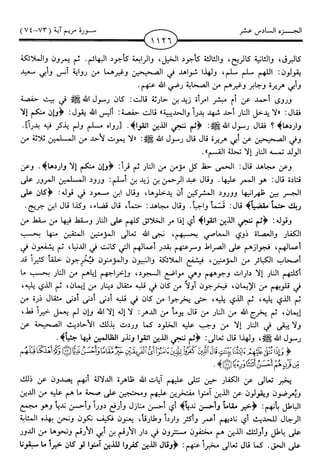 الجـــزء السادس عشر
١١٢٦
سورة مريم آية (٧٣-٧٤)
كالبرق، والثانية كالريح، والثالثة كأجود الخيل، والرابعة كأجود البهائم. ثم يمرون والملائكة
يقولون: اللهم سلم سلم، ولهذا شواهد في الصحيحين وغيرهما من رواية أنس وأبي سعيد
وأبي هريرة وجابر وغيرهم من الصحابة رضي الله عنهم.
وروى أحمد عن أم مبشر امرأة زيد بن حارثة قالت: كان رسول الله ﷺ في بيت حفصة
فقال: «لا يدخل النار أحد شهد بدراً والحديبية» قالت حفصة: أليس الله يقول: ﴿وإن منكم إلا
واردها﴾ ؟ فقال رسول الله ﷺ: ﴿ثم ننجي الذين اتقوا﴾. [رواه مسلم ولم يذكر فيه بدراً].
وفي الصحيحين عن أبي هريرة قال قال رسول الله ﷺ: «لا يموت لأحد من المسلمين ثلاثة من
الولد تمسه النار إلا تحلة القسم».
وعن مجاهد قال: الحمى حظ كل مؤمن من النار ثم قرأ: ﴿وإن منكم إلا واردها﴾. وعن
قتادة قال: هو الممر عليها. وقال عبد الرحمن بن زيد بن أسلم: ورود المسلمين المرور على
الجسر بين ظهرانيها وورود المشركين أن يدخلوها، وقال ابن مسعود في قوله: ﴿كان على
ربك حتماً مقضياً﴾ قال: قسماً واجباً. وقال مجاهد: حتماً، قال قضاء، وكذا قال ابن جريج.
وقوله: ﴿ثم ننجي الذين اتقوا﴾ أي إذا مر الخلائق كلهم على النار وسقط فيها من سقط من
الكفار والعصاة ذوي المعاصي بحسبهم، نجى الله تعالى المؤمنين المتقين منها بحسب
أعمالهم، فجوازهم على الصراط وسرعتهم بقدر أعمالهم التي كانت في الدنيا، ثم يشفعون في
أصحاب الكبائر من المؤمنين، فيشفع الملائكة والنبيون والمؤمنون فيُخرجون خلقاً كثيراً قد
أكلتهم النار إلا دارات وجوههم وهي مواضع السجود، وإخراجهم إياهم من النار بحسب ما
في قلوبهم من الإيمان، فيخرجون أولاً من كان في قلبه مثقال دينار من إيمان، ثم الذي يليه،
ثم الذي يليه، ثم الذي يليه، حتى يخرجوا من كان في قلبه أدنى أدنى أدنى مثقال ذرة من
إيمان، ثم يخرج الله من النار من قال يوماً من الدهر: لا إله إلا الله وإن لم يعمل خيراً قط،
ولا يبقى في النار إلا من وجب عليه الخلود كما وردت بذلك الأحاديث الصحيحة عن
رسول الله ﷺ، ولهذا قال تعالى: ﴿ثم ننجي الذين اتقوا ونذر الظالمين فيها جثياً﴾.
﴿وَإِذَا تُتْلَىٰ عَلَيْهِمْ ءَايَٰتُنَا بَيِّنَٰتٍ قَالَ ٱلَّذِينَ كَفَرُوا۟ لِلَّذِينَ ءَامَنُوٓا۟ أَىُّ ٱلْفَرِيقَيْنِ خَيْرٌ مَّقَامًا وَأَحْسَنُ نَدِيًّا ﴿٧٣﴾ وَكَمْ أَهْلَكْنَا قَبْلَهُم
مِّن قَرْنٍ هُمْ أَحْسَنُ أَثَٰثًا وَرِءْيًا ﴿٧٤﴾﴾.
يخبر تعالى عن الكفار حين تتلى عليهم آيات الله ظاهرة الدلالة أنهم يصدون عن ذلك
ويُعرضون ويقولون عن الذين آمنوا مفتخرين عليهم ومحتجين على صحة ما هم عليه من الدين
الباطل بأنهم: ﴿خير مقاماً وأحسن ندياً﴾ أي أحسن منازل وأرفع دوراً وأحسن ندياً وهو مجمع
الرجال للحديث أي ناديهم أعمر وأكثر وارداً وطارقاً، يعنون فكيف نكون ونحن بهذه المثابة
على باطل وأولئك الذين هم مختفون مستترون في دار الأرقم بن أبي الأرقم ونحوها من الدور
على الحق. كما قال تعالى مخبراً عنهم: ﴿وقال الذين كفروا للذين آمنوا لو كان خيراً ما سبقونا